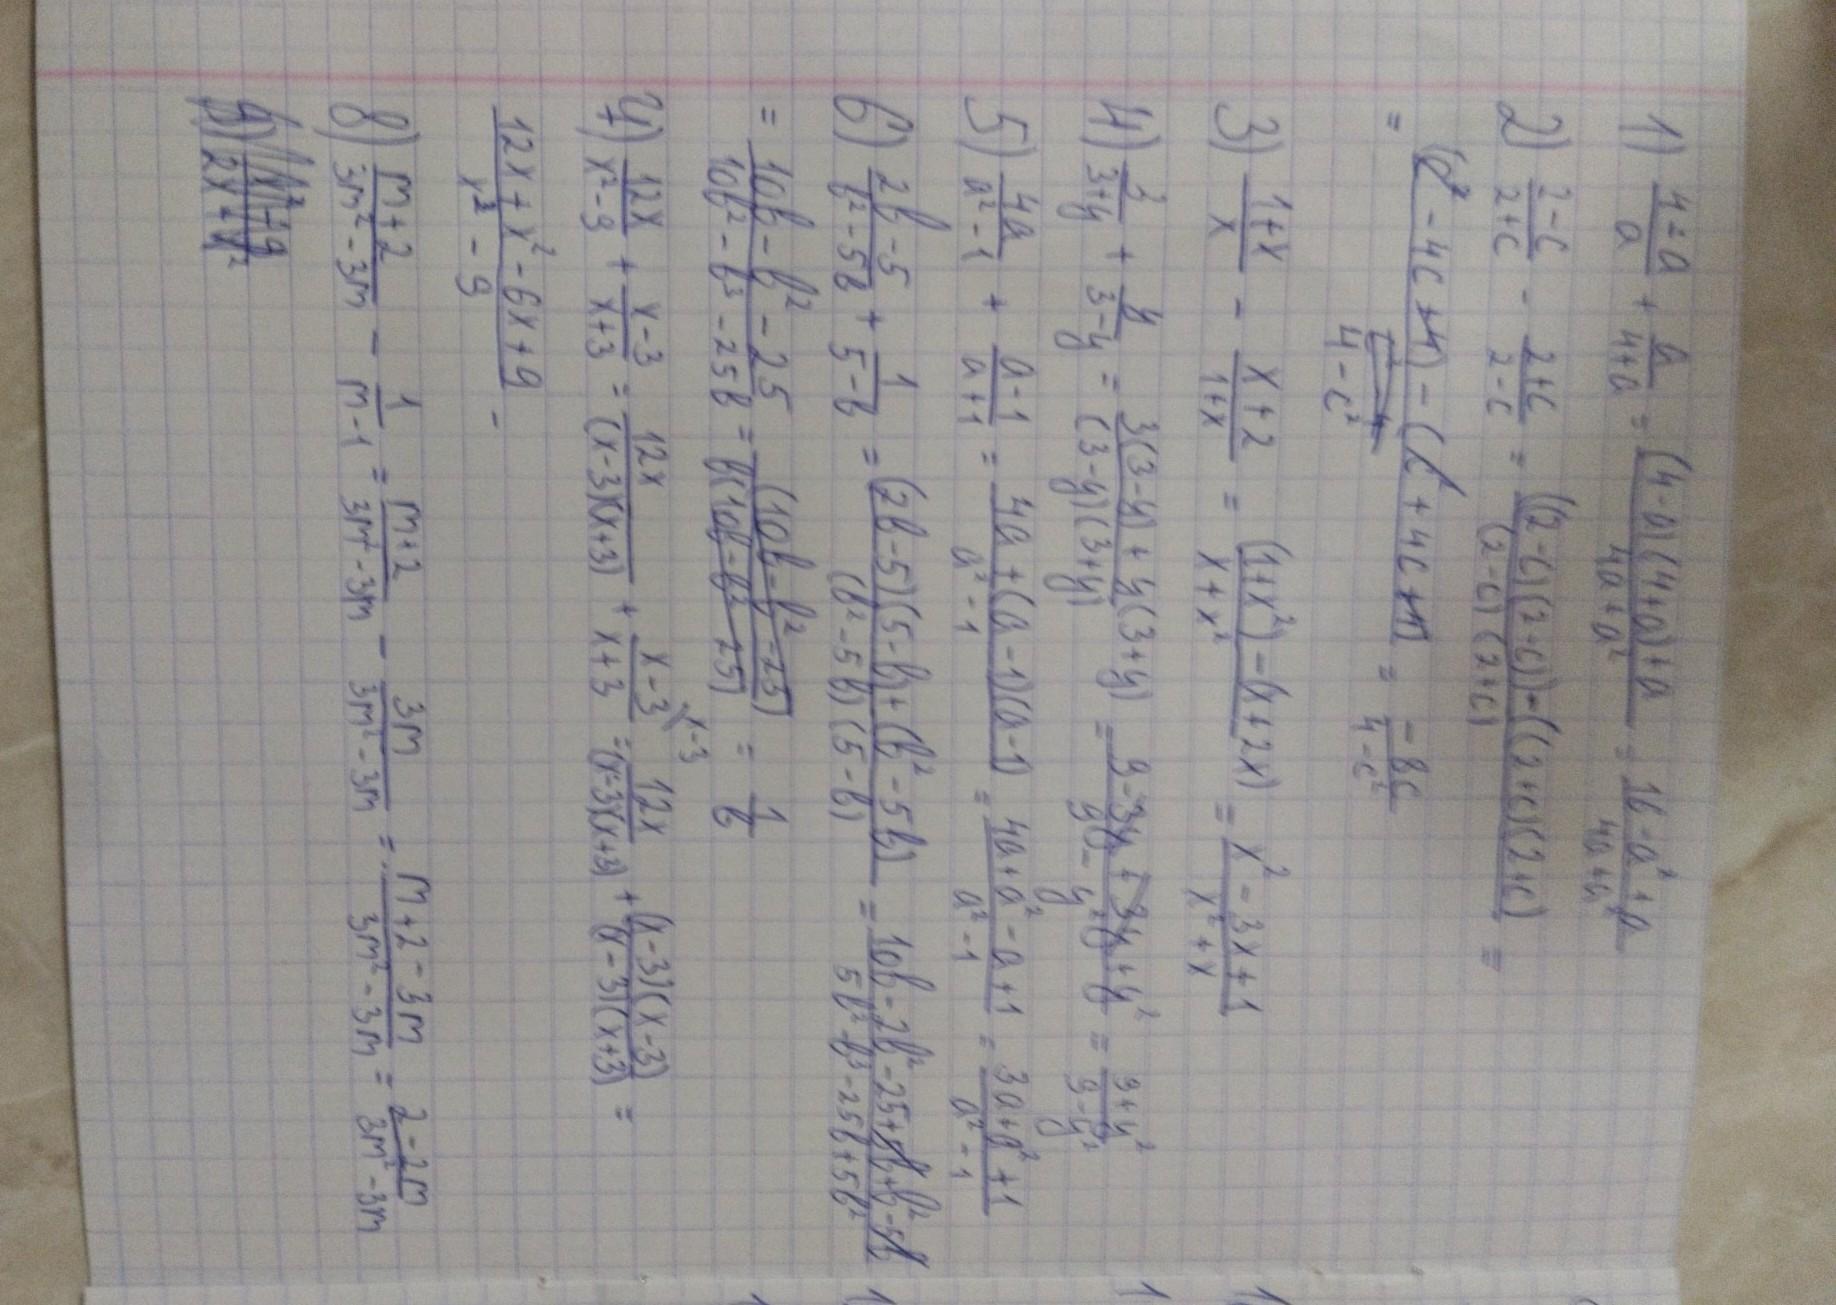 1) (4-a)/a + a/(4+a) = ((4-a)(4+a)+a)/(4a+a²) = (16-a²+a)/(4a+a²)
2) (2-c)/(2+c) - (2+c)/(2-c) = ((2-c)(2+c))-((2+c)(2+c))/(2-c)(2+c) =
= (c²-4c+4)-(c²+4c+4)/(4-c²) = (-8c)/(4-c²)
3) (1+x)/x - (x+2)/(1+x) = ((1+x²)-(x+2x))/(x+x²) = (x²-3x+1)/(x²+x)
4) 3/(3+y) + y/(3-y) = (3(3-y)+y(3+y))/((3-y)(3+y)) = (9-3y+3y+y²)/(9-y²) = (9+y²)/(9-y²)
5) 4a/(a²-1) + (a-1)/(a+1) = (4a+(a-1)(a-1))/(a²-1) = (4a+a²-a+1)/(a²-1) = (3a+a²+1)/(a²-1)
6) (2b-5)/(b²-5b) + 1/(5-b) = ((2b-5)(5-b)+(b²-5b))/((b²-5b)(5-b)) = (10b-2b²-25+5b+b²-5b)/(5b²-b³-25b+5b²)
= (10b-b²-25)/(10b²-b³-25b) = (10b-b²-25)/(b(10b-b²-25)) = 1/b
7) 12x/(x²-9) + (x-3)/(x+3) = 12x/((x-3)(x+3)) + (x-3)/(x+3) \x-3 = 12x/((x-3)(x+3)) + ((x-3)(x-3))/((x-3)(x+3)) =
(12x+x²-6x+9)/(x²-9) -
8) (m+2)/(3m²-3m) - 1/(m-1) = (m+2)/(3m²-3m) - 3m/(3m²-3m) = (m+2-3m)/(3m²-3m) = (2-2m)/(3m²-3m)